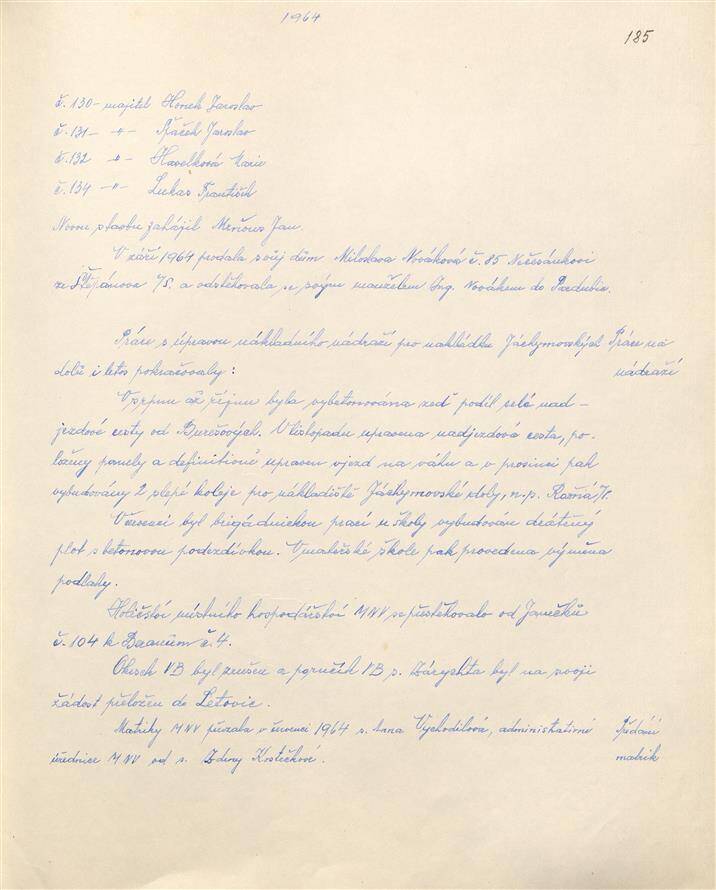 1964
185
č. 130 - majitel Horák Jaroslav
č. 131 - " - Řáček Jaroslav
č. 132 - " - Havelková Marie
č. 134 - " - Lukas František
Novou stavbu zahájil Jan.
V září 1964 prodala svůj dům Miloslava Nováková č. 85 Nečesánkovi
ze Štěpánova /S. a odstěhovala se svým manželem Ing. Novákem do Pardubic.
Práce s úpravou nákladního nádraží pro nakládku Jáchymovských Práce na
dolů i letos pokračovaly: nádraží
V srpnu až říjnu byla vybetonována zeď podél celé nad-
jezdové cesty od Burešových. V listopadu upravena nadjezdová cesta, po-
loženy panely a definitivně upraven vjezd na váhu a v prosinci pak
vybudovány 2 slepé koleje pro nákladiště Jáchymovské doly, n.p. Rožná/P.
V červenci byl brigádnickou prací u školy vybudován drátěný
plot s betonovou podezdívkou. V mateřské škole pak provedena výměna
podlahy.
Holičství místního hospodářství MNV se přestěhovalo od Janečků
č. 104 k č. 4.
Okrsek VB byl zrušen a poručík VB s. Zárychta byl na svoji
žádost přeložen do Letovic.
Matriky MNV převzala v červenci 1964 s. Hana Vychodilová, administrativní Předání
úřednice MNV od s. Zdeny Krštičkové. matrik